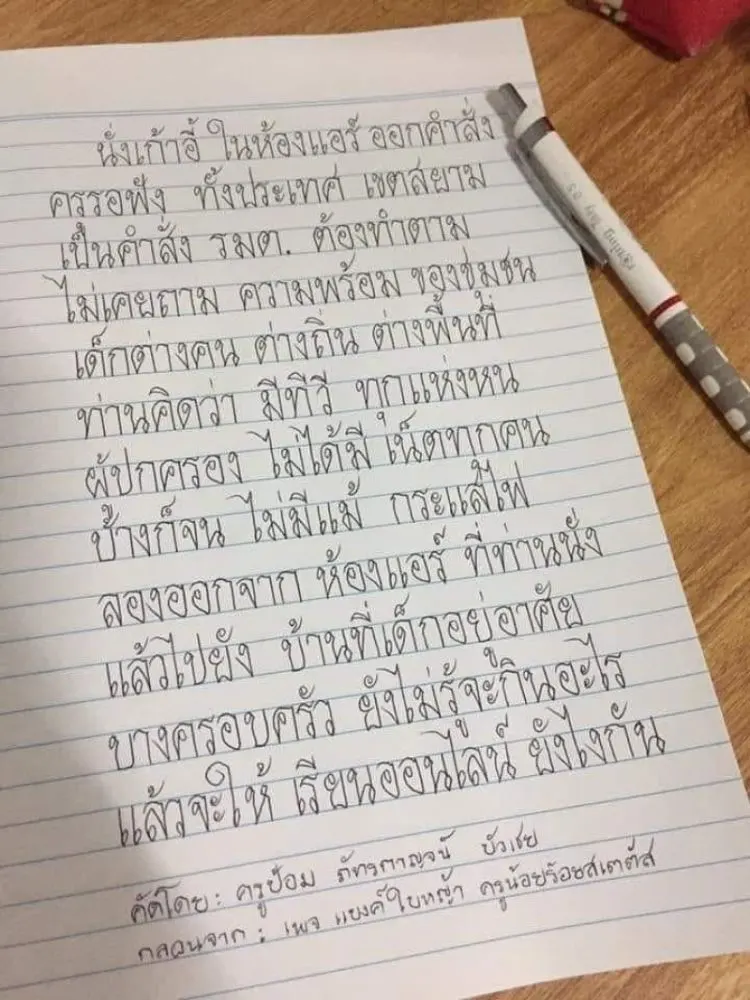 นั่งเก้าอี้ ในห้องแอร์ ออกคำสั่ง
ครูรอฟัง ทั้งประเทศ เขตสยาม
เป็นคำสั่ง รมต. ต้องทำตาม
ไม่เคยถาม ความพร้อม ของชุมชน
เด็กต่างคน ต่างถิ่น ต่างพื้นที่
ท่านคิดว่า มีทีวี ทุกแห่งหน
ผู้ปกครอง ไม่ได้มี เน็ตทุกคน
บ้างก็จน ไม่มีแม้ กระแสไฟ
ลองออกจาก ห้องแอร์ ที่ท่านนั่ง
แล้วไปยัง บ้านที่เด็กอยู่อาศัย
บางครอบครัว ยังไม่รู้จะกินอะไร
แล้วจะให้ เรียนออนไลน์ ยังไงกัน
คัดโดย : ครูป้อม ภัทรกาญจน์ บัวเชย
กลอนจาก : เพจ แบงค์ใบหญ้า ครูน้อยร้อยสเตตัส